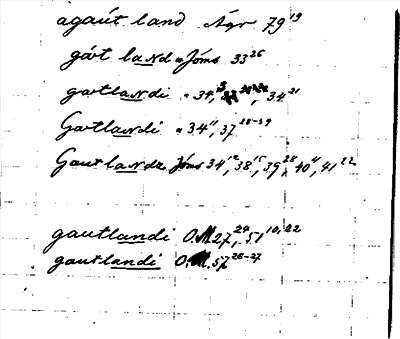 agaút land Ágr 79¹⁹
gávt land " Jóms 33²⁶
gavtlandi " 34,¹³ 34²¹
Gavtlandi " 34¹¹, 37²⁸⁻²⁹
Gautlandz Jóms 34,¹² 38,¹⁵ 39,²⁸ 40,⁴ 41²²
gautlandi O.M. 27,²⁴ 51¹⁰,²²
gautlandi O.M. 57²⁶⁻²⁷